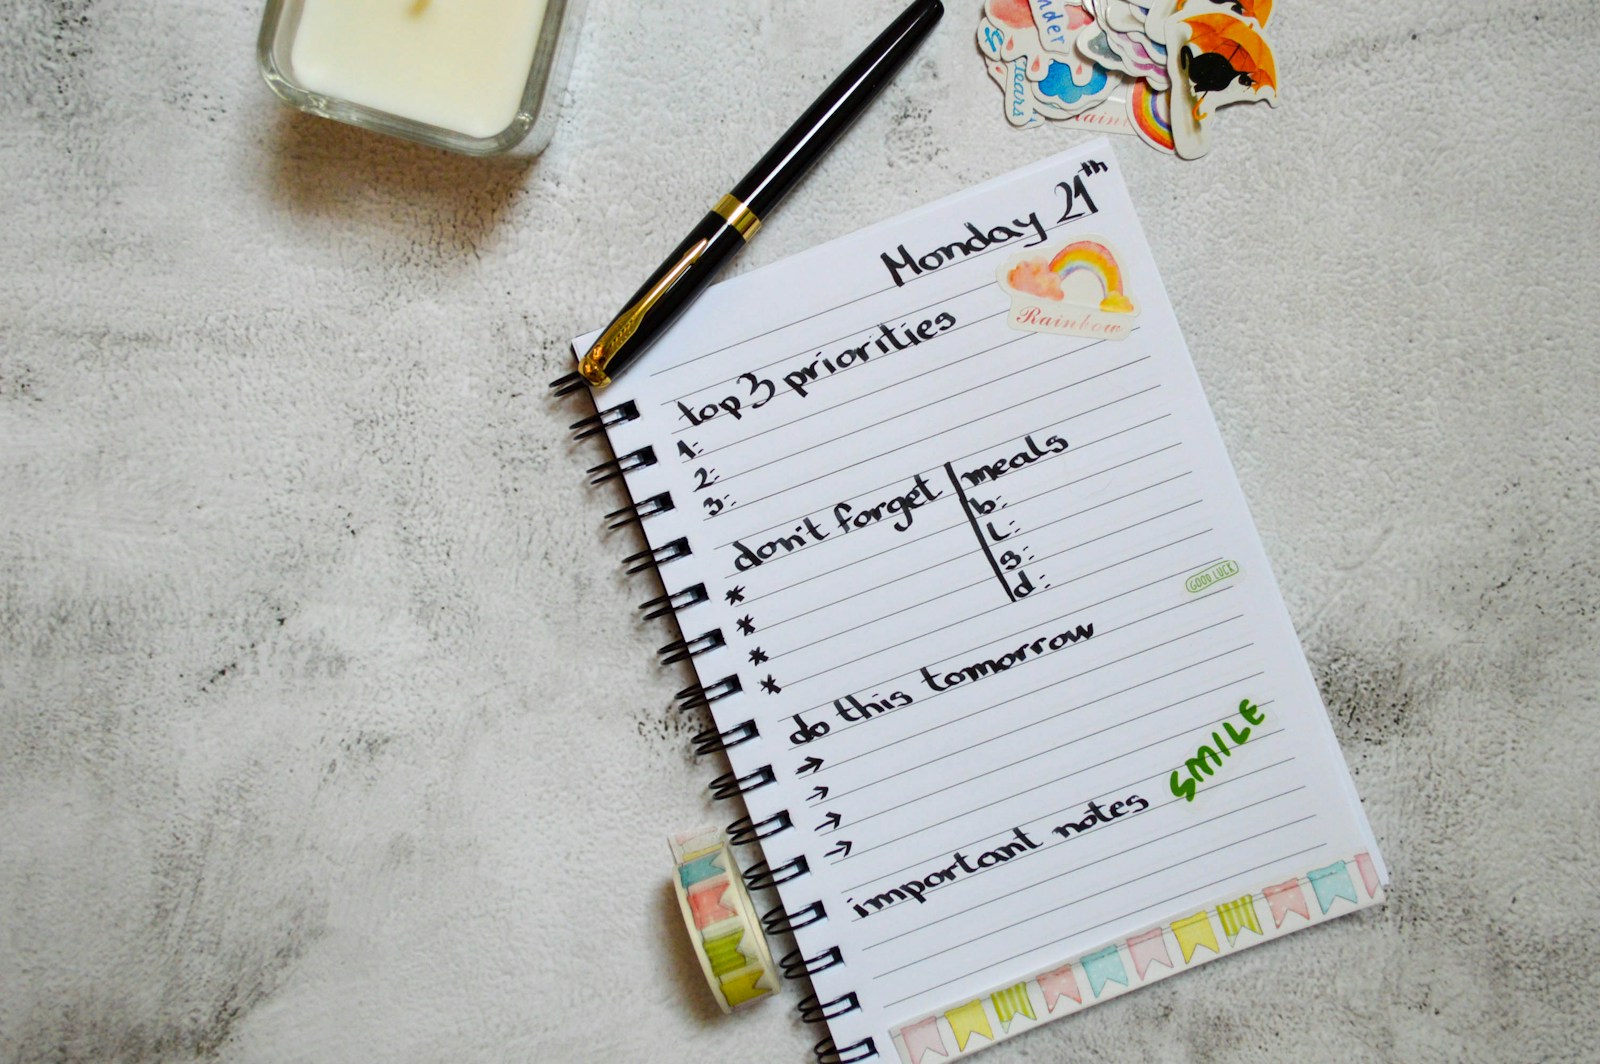 nder
Tears
Monday 21th
Rainbow
top 3 priorities
1:
2:
3:
don't forget
*
*
*
*
meals
b:
l:
s:
d:
GOOD LUCK
do this tomorrow
→
→
→
→
SMILE
important notes